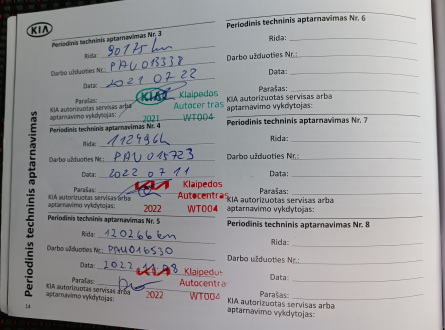 KIA
Periodinis techninis aptarnavimas
Periodinis techninis aptarnavimas Nr. 3
Rida: 90175 km
Darbo užduoties Nr.: PAU013338
Data: 2021 07 22
Parašas:
KIA autorizuotas servisas arba
aptarnavimo vykdytojas:
KIA Klaipėdos
Autocentras
2021 WT004
Periodinis techninis aptarnavimas Nr. 4
Rida:
Darbo užduoties Nr.: PAU015723
Data: 2022 07 11
Parašas:
KIA autorizuotas servisas arba
aptarnavimo vykdytojas:
KIA Klaipėdos
Autocentras
2022 WT004
Periodinis techninis aptarnavimas Nr. 5
Rida: 120266 km
Darbo užduoties Nr.: PAU016530
Data: 2022
Parašas:
KIA autorizuotas servisas arba
aptarnavimo vykdytojas:
KIA Klaipėdos
Autocentras
2022 WT004
14
Periodinis techninis aptarnavimas Nr. 6
Rida:
Darbo užduoties Nr.:
Data:
Parašas:
KIA autorizuotas servisas arba
aptarnavimo vykdytojas:
Periodinis techninis aptarnavimas Nr. 7
Rida:
Darbo užduoties Nr.:
Data:
Parašas:
KIA autorizuotas servisas arba
aptarnavimo vykdytojas:
Periodinis techninis aptarnavimas Nr. 8
Rida:
Darbo užduoties Nr.:
Data:
Parašas:
KIA autorizuotas servisas arba
aptarnavimo vykdytojas: